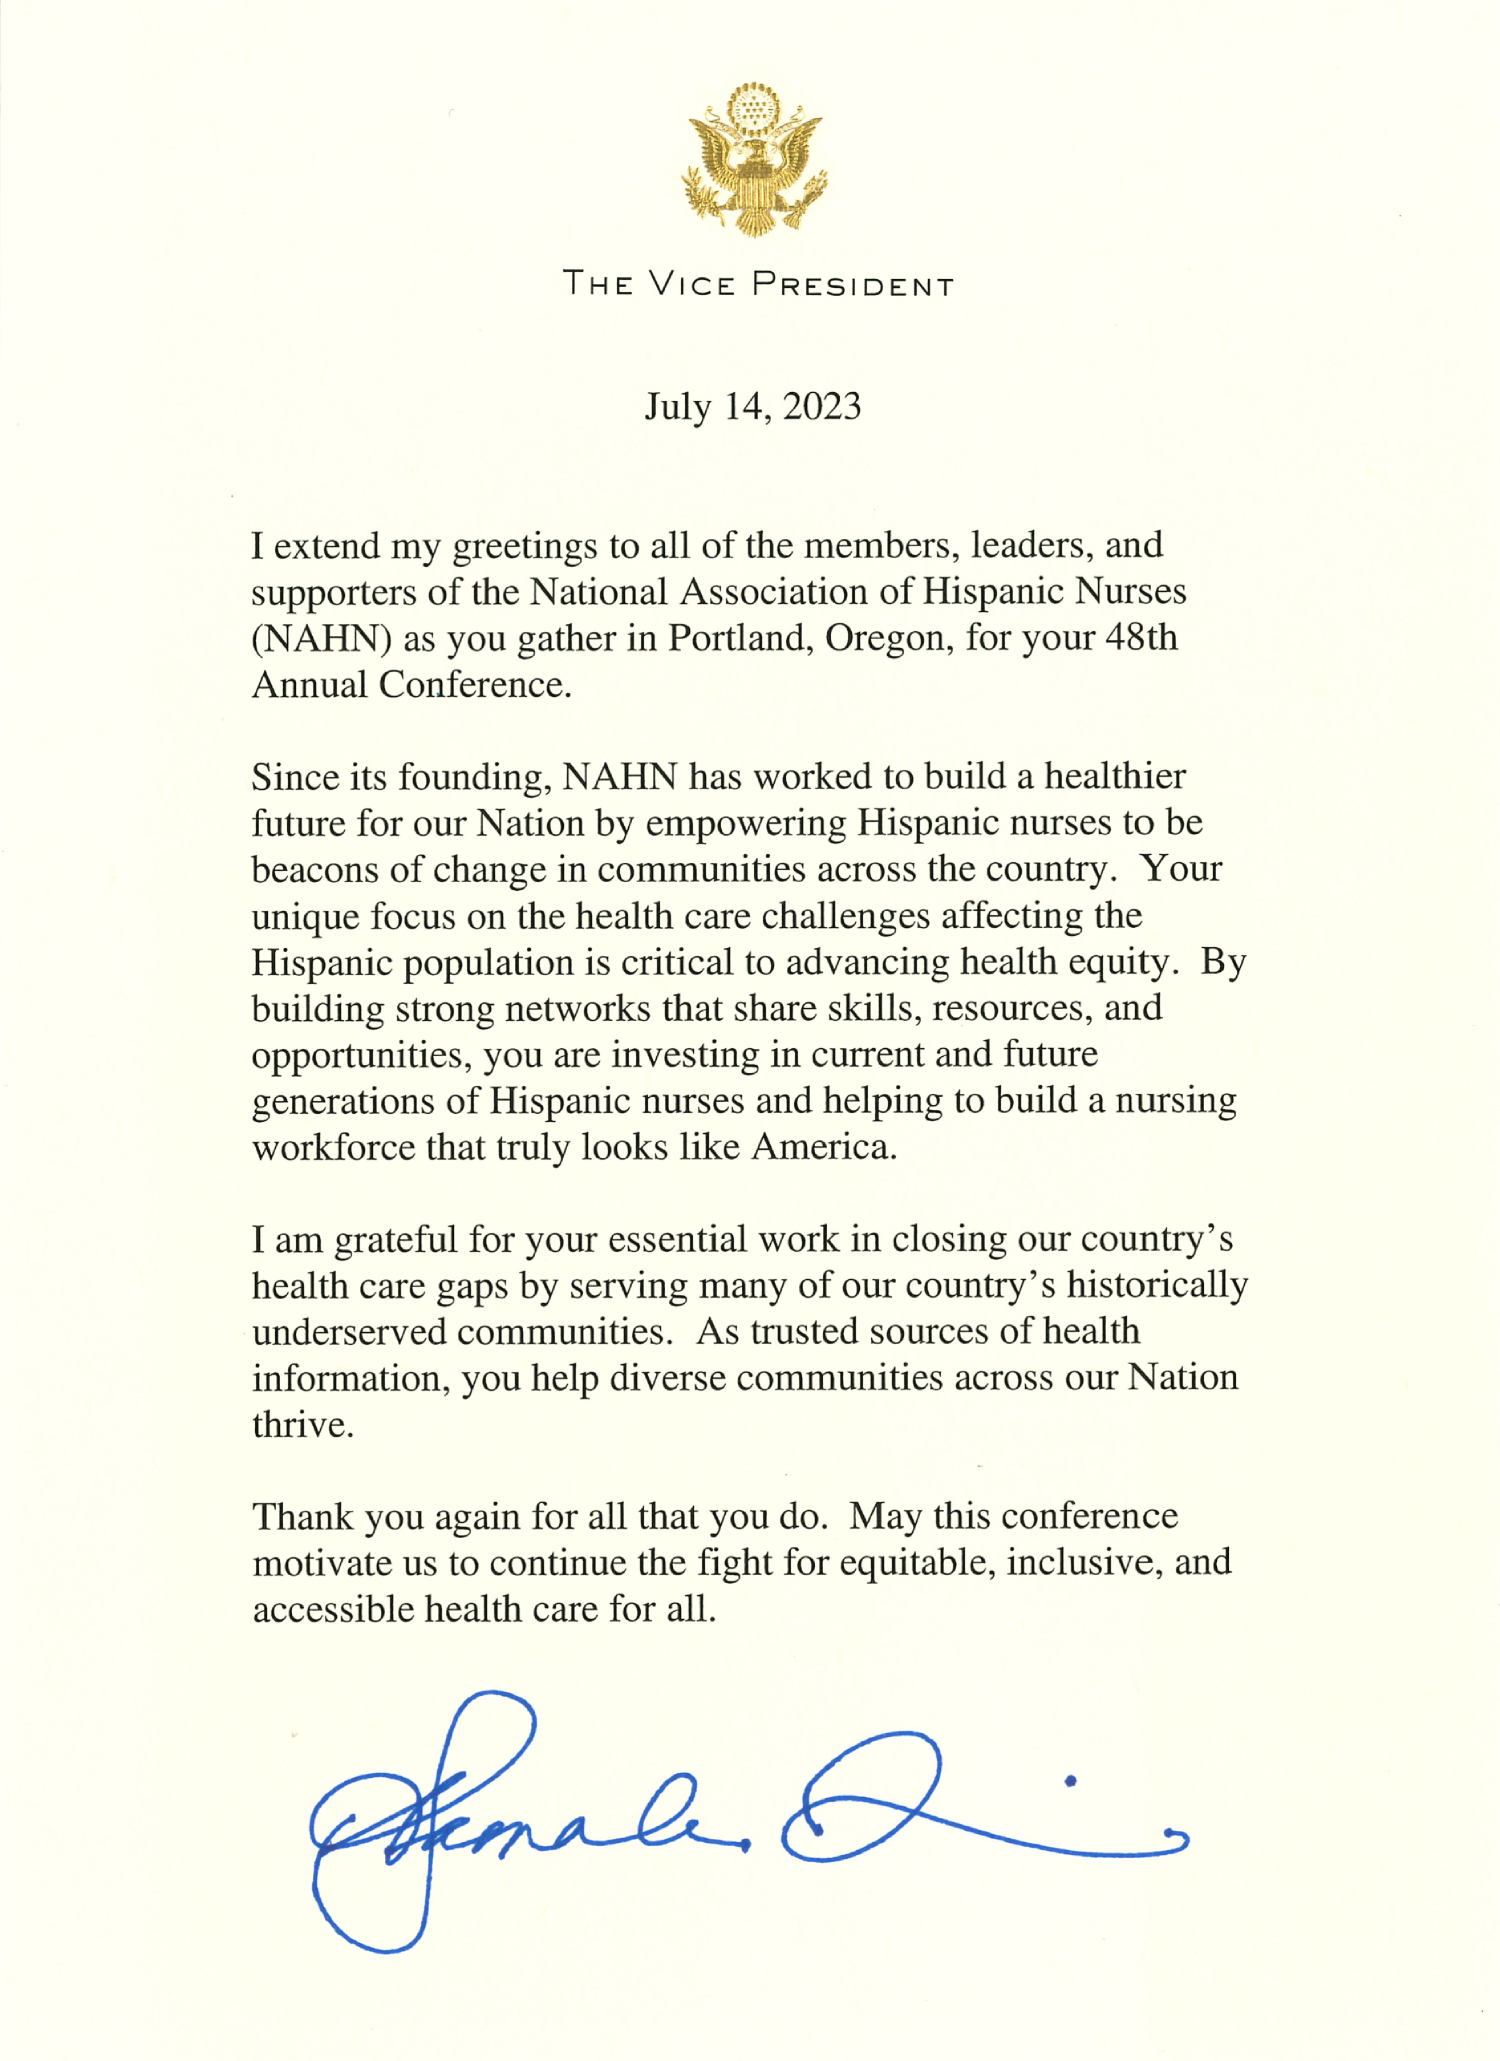 THE VICE PRESIDENT
July 14, 2023
I extend my greetings to all of the members, leaders, and
supporters of the National Association of Hispanic Nurses
(NAHN) as you gather in Portland, Oregon, for your 48th
Annual Conference.
Since its founding, NAHN has worked to build a healthier
future for our Nation by empowering Hispanic nurses to be
beacons of change in communities across the country.  Your
unique focus on the health care challenges affecting the
Hispanic population is critical to advancing health equity.  By
building strong networks that share skills, resources, and
opportunities, you are investing in current and future
generations of Hispanic nurses and helping to build a nursing
workforce that truly looks like America.
I am grateful for your essential work in closing our country’s
health care gaps by serving many of our country’s historically
underserved communities.  As trusted sources of health
information, you help diverse communities across our Nation
thrive.
Thank you again for all that you do.  May this conference
motivate us to continue the fight for equitable, inclusive, and
accessible health care for all.
Kamala